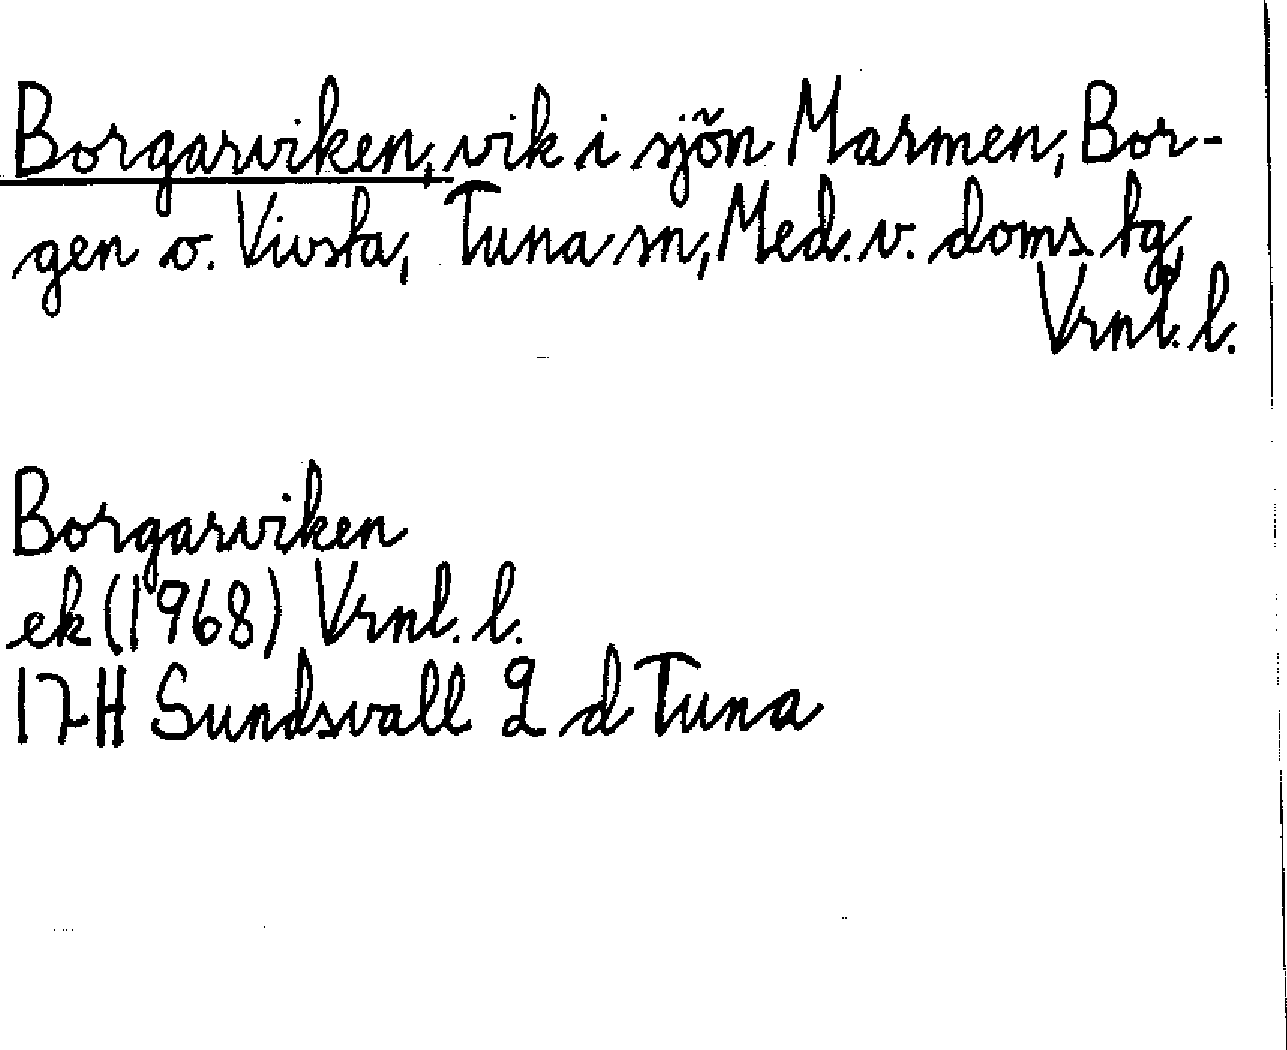 Borgarviken, vik i sjön Marmen, Bor-
gen o. Vivsta, Tuna sn, Med. v. doms. tg,
Vrnl. l.
Borgarviken
ek (1968) Vrnl. l.
17H Sundsvall 2 d Tuna